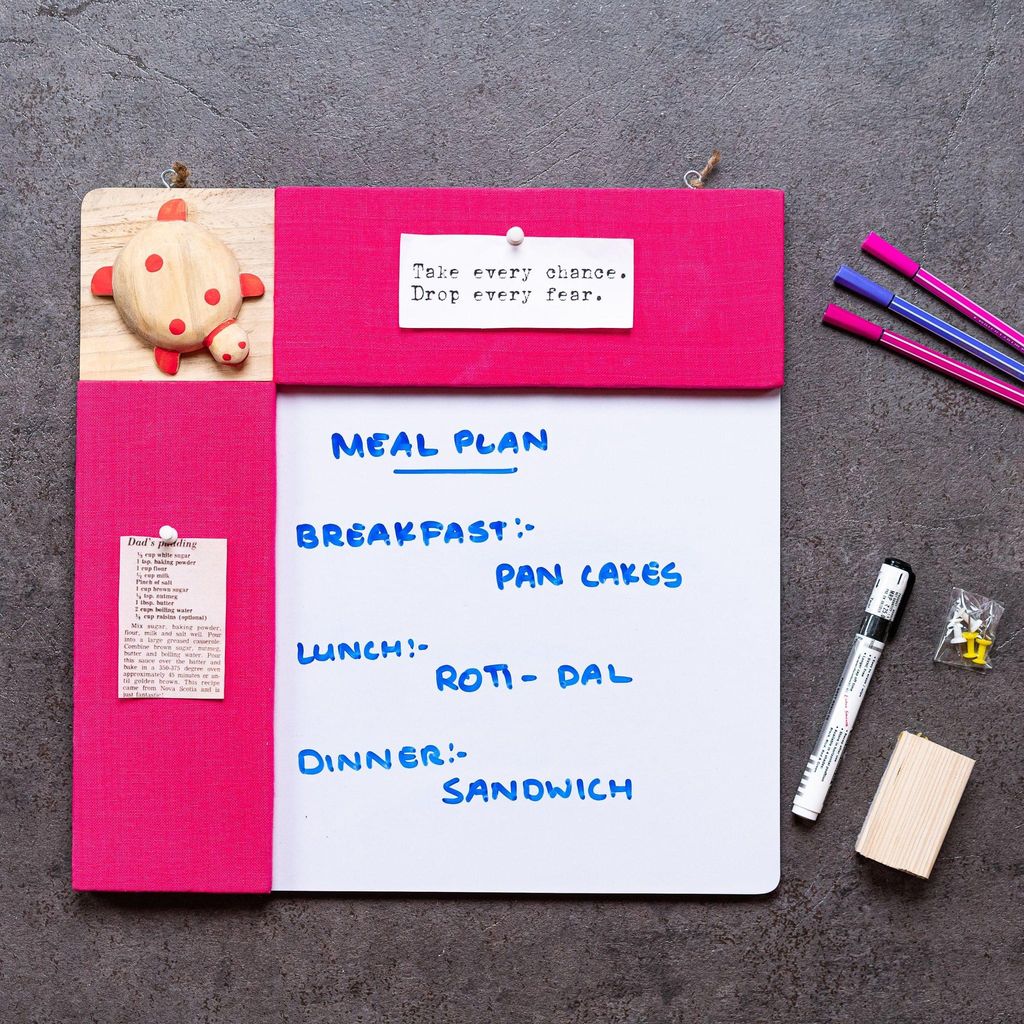 Take every chance.
Drop every fear.
MEAL PLAN
BREAKFAST:-
PAN CAKES
LUNCH:-
ROTI - DAL
DINNER:-
SANDWICH
Dad's pudding
½ cup white sugar
1 tsp. baking powder
1 cup flour
½ cup milk
Pinch of salt
1 cup brown sugar
¼ tsp. nutmeg
1 tbsp. butter
2 cups boiling water
cup raisins (optional)
Mix sugar, baking powder,
flour, milk and salt well. Pour
into a large greased casserole.
Combine brown sugar, nutmeg,
butter and boiling water. Pour
this sauce over the batter and
bake in a 350-375 degree oven
approximately 45 minutes or un-
til golden brown. This recipe
came from Nova Scotia and is
just fantastic!